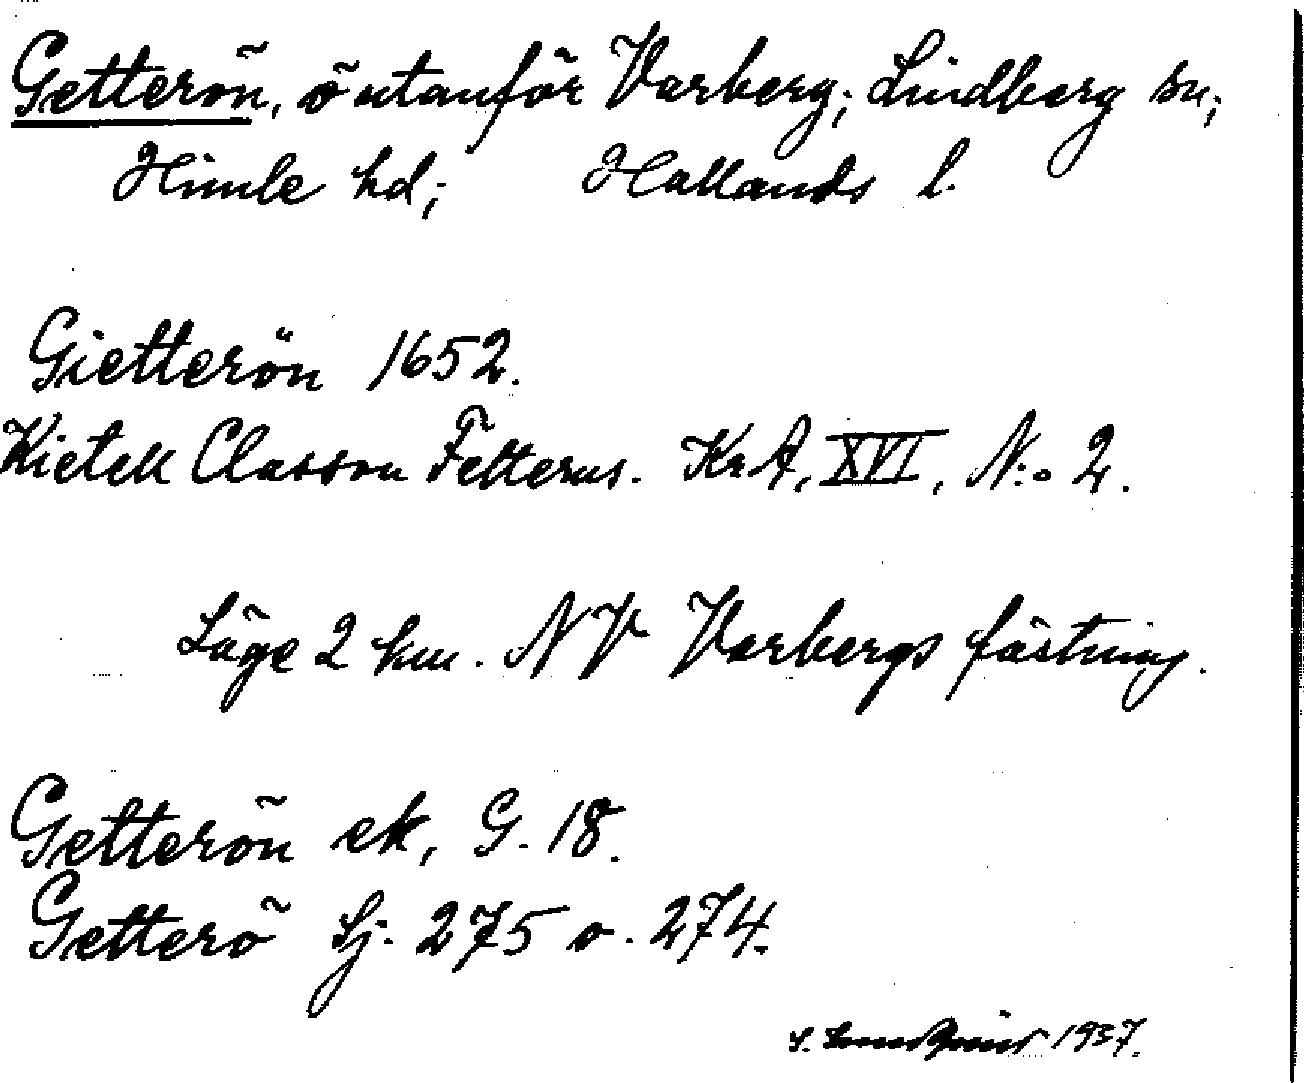 Getterön, ö utanför Varberg; Lindberg sn;
Himle hd; Hallands l.
Gietterön 1652.
Kietell Classon Felterus. Kr.A, XVI, N:o 2.
Läge 2 km. NV Varbergs fästning.
Getterön ek, G. 18.
Getterö Sj. 275 o. 274.
1937.